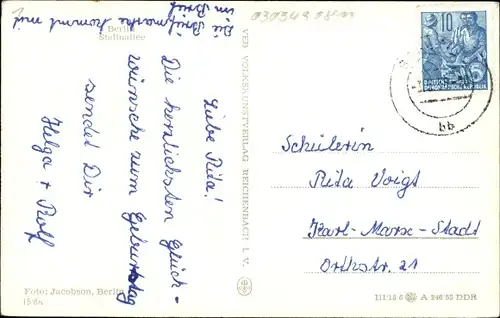 Berlin
Stalinallee
Die Briefmarke kommt mit
im Brief
Liebe Rita!
Die herzlichsten Glück-
wünsche zum Geburtstag
sendet Dir
Helga + Rolf
Foto: Jacobson, Berlin
VEB VOLKSKUNSTVERLAG REICHENBACH I. V.
10
DEUTSCHE
DEMOKRATISCHE REPUBLIK
bb
Schülerin
Rita Voigt
Karl-Marx-Stadt
Orthstr. 21
III/18 6 A 146/55 DDR